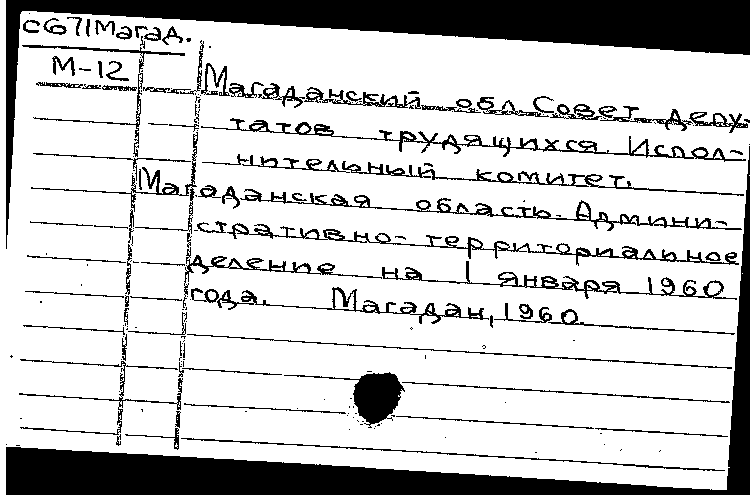 С671Магад.
М-12
Магаданский обл. Совет депу-
татов трудящихся. Испол-
нительный комитет.
Магаданская область. Админи-
стративно-территориальное
деление на 1 января 1960
года. Магадан, 1960.